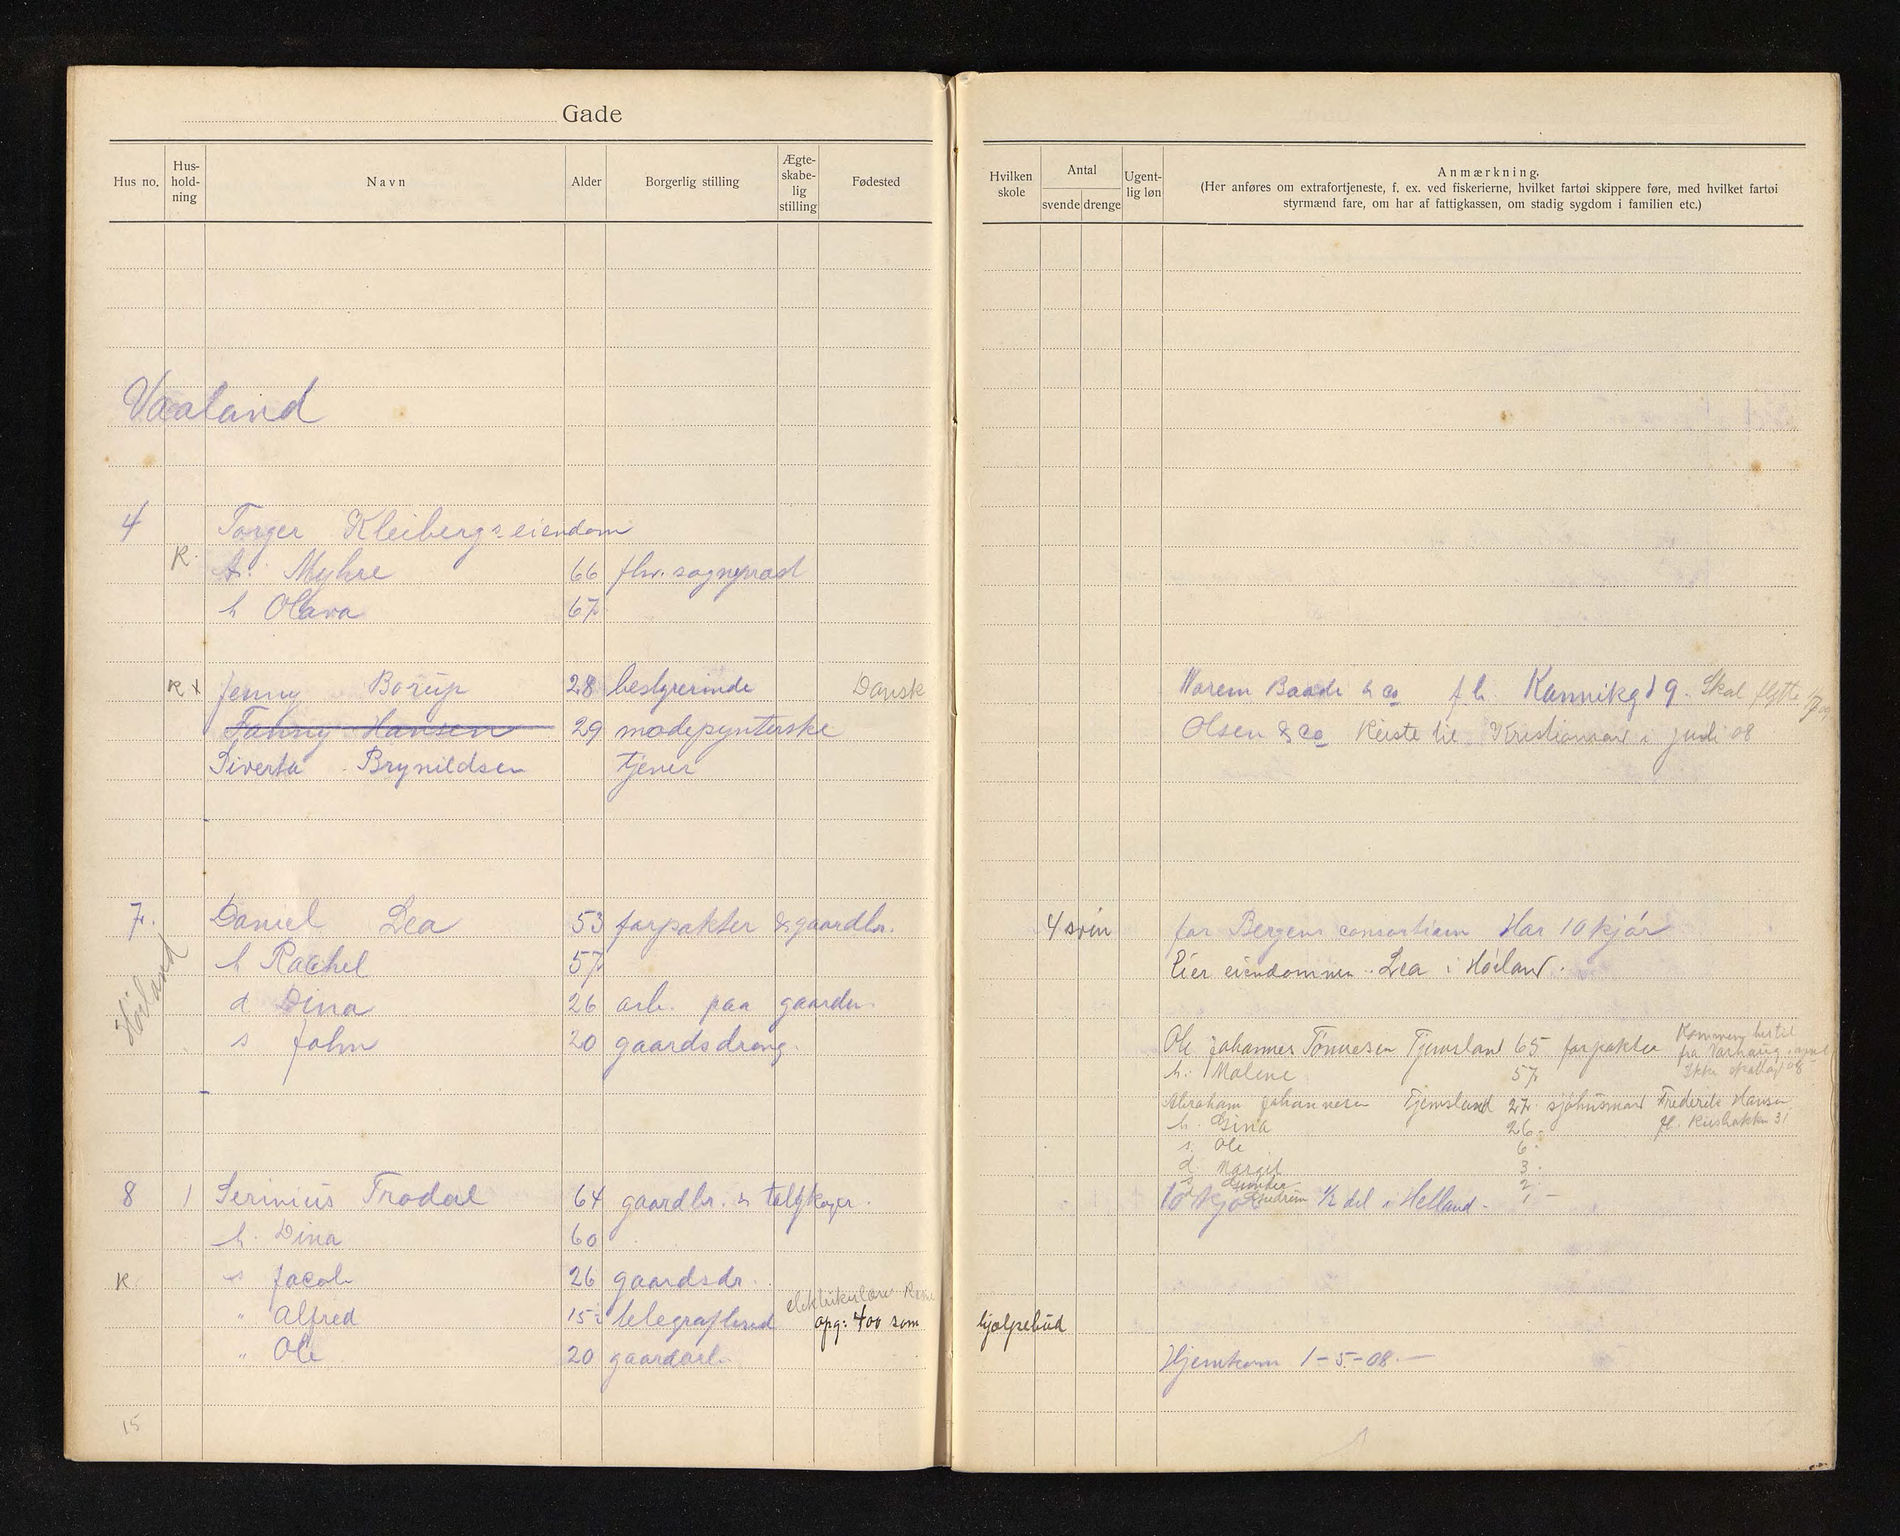 Gade
Hus no. Hus-hold-ning Navn Alder Borgerlig stilling Ægte-skabe-lig stilling Fødested Hvilken skole Antal svende drenge Ugent-lig løn Anmærkning.
(Her anføres om extrafortjeneste, f. ex. ved fiskerierne, hvilket fartøi skippere føre, med hvilket fartøi
styrmænd fare, om har af fattigkassen, om stadig sygdom i familien etc.)
Vaaland
4 Torger Kleibergs eiendom
R. A. Myhre 66 fhv. sognepræst
h Olava 67
R x Jenny Borup 28 bestyrerinde Dansk Warem Baade & co f.h. Kannikgd 9. Skal flytte
Fanny Hansen 29 modepynterske Olsen & co Reiste til Kristiansand i juli 08
Siverta Brynildsen tjener
7. Daniel Lea 53 forpakter & gaardbr. 4 svin for Bergens consortium Har 10 kjör
h Rachel 57 Eier eiendommen Lea i Höiland.
d Dina 26 arb. paa gaarden.
Höiland
s John 20 gaardsdreng. Ole Johannes Tönnesen Tjemsland 65 forpakter Kommen hertil
fra Varhaug i april
h. Malene 57 Ikke skattet 08
Abraham Johannesen Tjemsland 27 sjöhusmand Frederik Hansen
h. Gina 26 fl.
s. Ole 6
d Margit 3
2
8 1 Serinius Trodal 64 gaardbr. & talgkoger. 10 kjör Gudrun 1/2 del i Helland. 1
h. Dina 60
R. s Jacob 26 gaardsdr.
" Alfred 15 telegrafbud opg: 400 som hjælpebud
" Ole 20 gaardarb. Hjemkom 1-5-08.
15